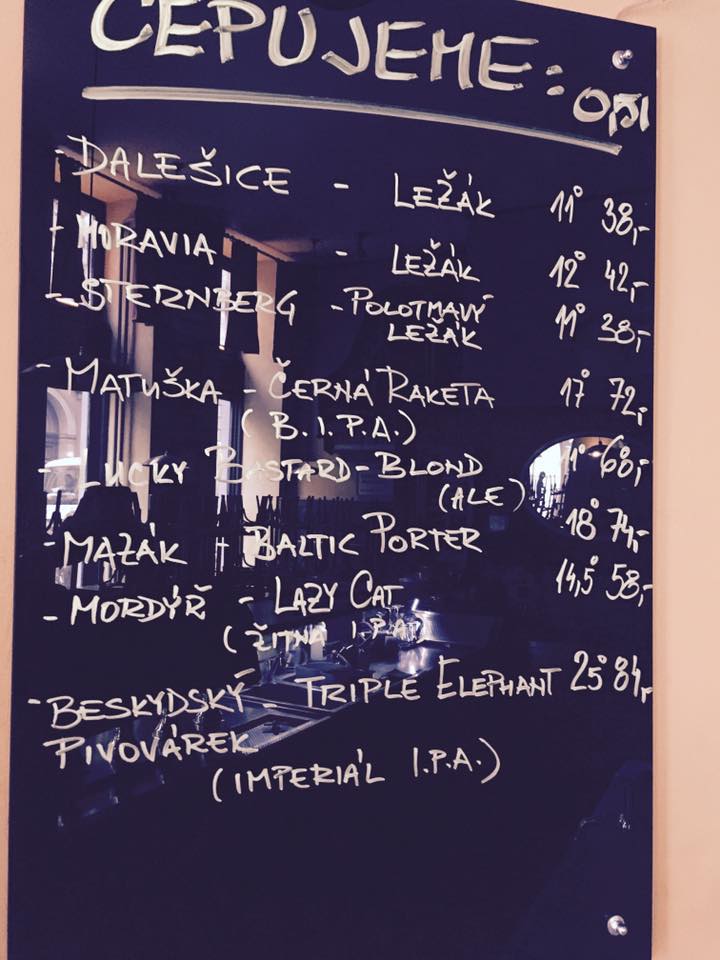 ČEPUJEME: 0,5l
- DALEŠICE - LEŽÁK 11° 38,-
- MORAVIA - LEŽÁK 12° 42,-
- STERNBERG - POLOTMAVÝ 11° 38,-
LEŽÁK
- MATUŠKA - ČERNÁ RAKETA 17° 72,-
(B.I.P.A.)
- LUCKY BASTARD - BLOND 11° 60,-
(ALE)
- MAZÁK - BALTIC PORTER 18° 74,-
- MORDÝŘ - LAZY CAT 14,5° 58,-
(ŽITNÁ I.P.A.)
- BESKYDSKÝ - TRIPLE ELEPHANT 25° 84,-
PIVOVÁREK
(IMPERIÁL I.P.A.)